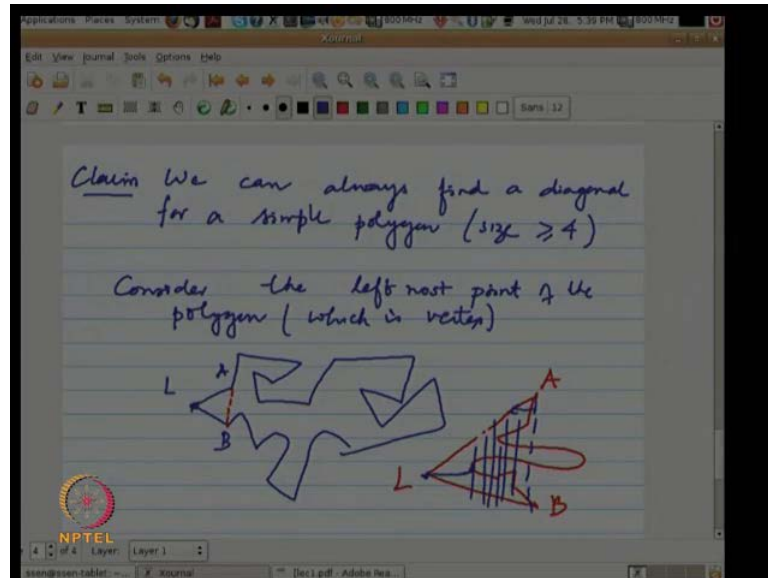 Applications Places System 800 MHz Wed Jul 28, 5:39 PM 800 MHz
Xournal
Edit View Journal Tools Options Help
T Sans 12
Claim We can always find a diagonal
for a simple polygon (size ≥ 4)
Consider the left most point of the
polygon (which is vertex)
L A B
A L B
NPTEL
4 of 4 Layer: Layer 1
ssen@ssen-tablet: ~ Xournal [lec1.pdf - Adobe Rea...